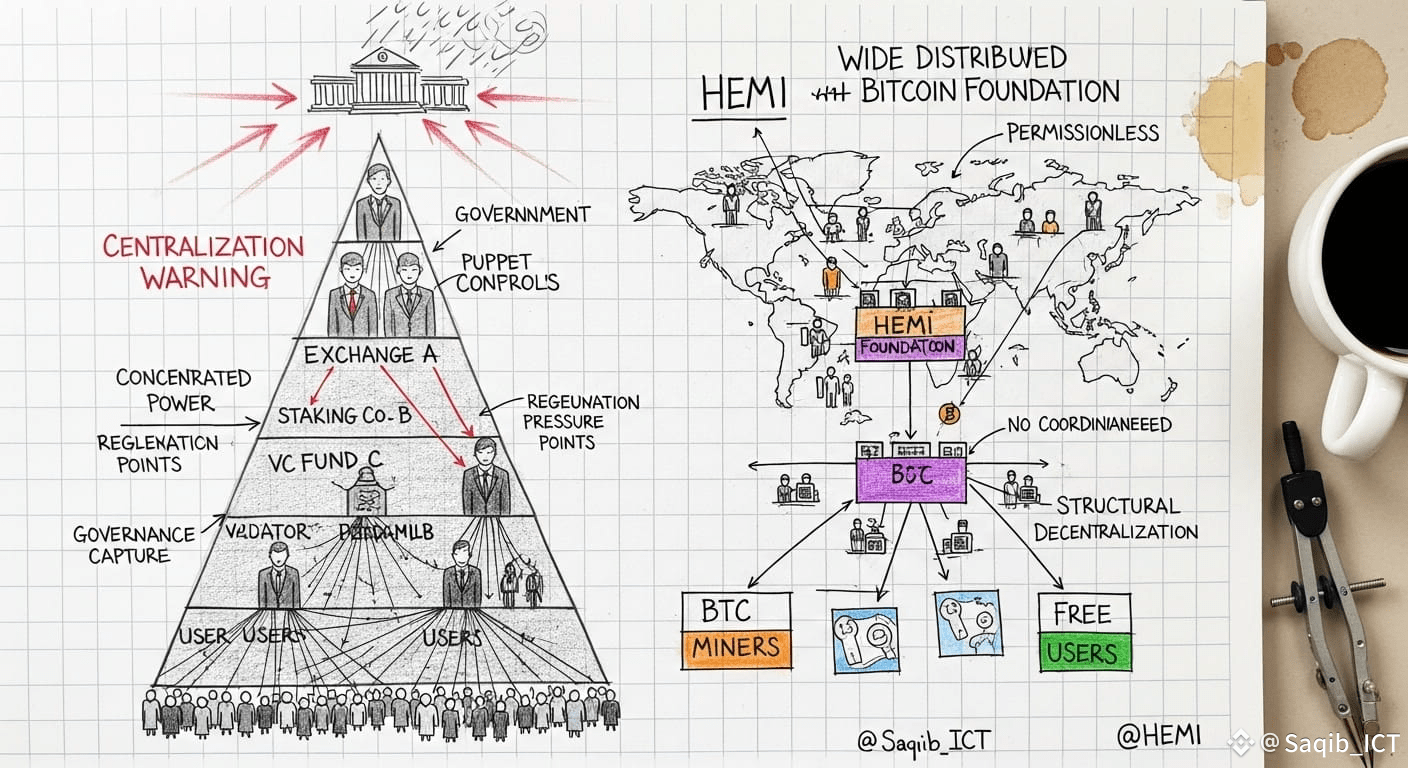 CENTRALIZATION
WARNING
GOVERNNMENT
PUPPET
EXCHANGE A
CONCENRATED
POWER
STAKING CO-B
REGEUNATION
PRESSURE
POINTS
REGLENATION
POINTS
VC FUND C
GOVERNANCE
CAPTURE
USER USERS
USERS
HEMI
WIDE DISTRIBUWED
BITCOIN FOUNDATION
PERMISSIONLESS
HEMI
FOUNDATOON
NO COORDINIANEEED
STRUCTURAL
DECENTRALIZATION
BTC
MINERS
FREE
USERS
@Saqiib_ICT
@HEMI
@Saqib_ICT